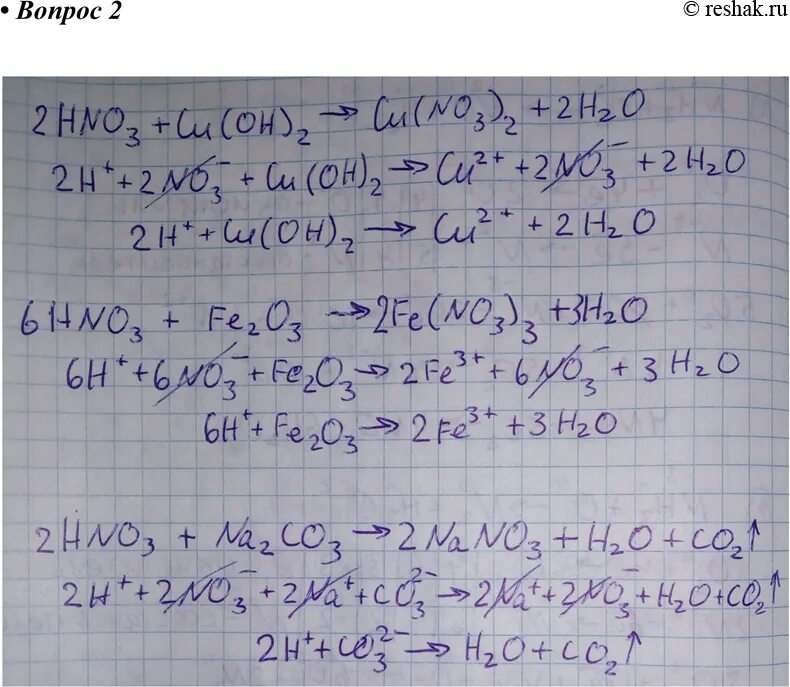 • Вопрос 2
© reshak.ru
2HNO₃ + Cu(OH)₂ → Cu(NO₃)₂ + 2H₂O
2H⁺ + 2NO₃⁻ + Cu(OH)₂ → Cu²⁺ + 2NO₃⁻ + 2H₂O
2H⁺ + Cu(OH)₂ → Cu²⁺ + 2H₂O
6HNO₃ + Fe₂O₃ → 2Fe(NO₃)₃ + 3H₂O
6H⁺ + 6NO₃⁻ + Fe₂O₃ → 2Fe³⁺ + 6NO₃⁻ + 3H₂O
6H⁺ + Fe₂O₃ → 2Fe³⁺ + 3H₂O
2HNO₃ + Na₂CO₃ → 2NaNO₃ + H₂O + CO₂↑
2H⁺ + 2NO₃⁻ + 2Na⁺ + CO₃²⁻ → 2Na⁺ + 2NO₃⁻ + H₂O + CO₂↑
2H⁺ + CO₃²⁻ → H₂O + CO₂↑